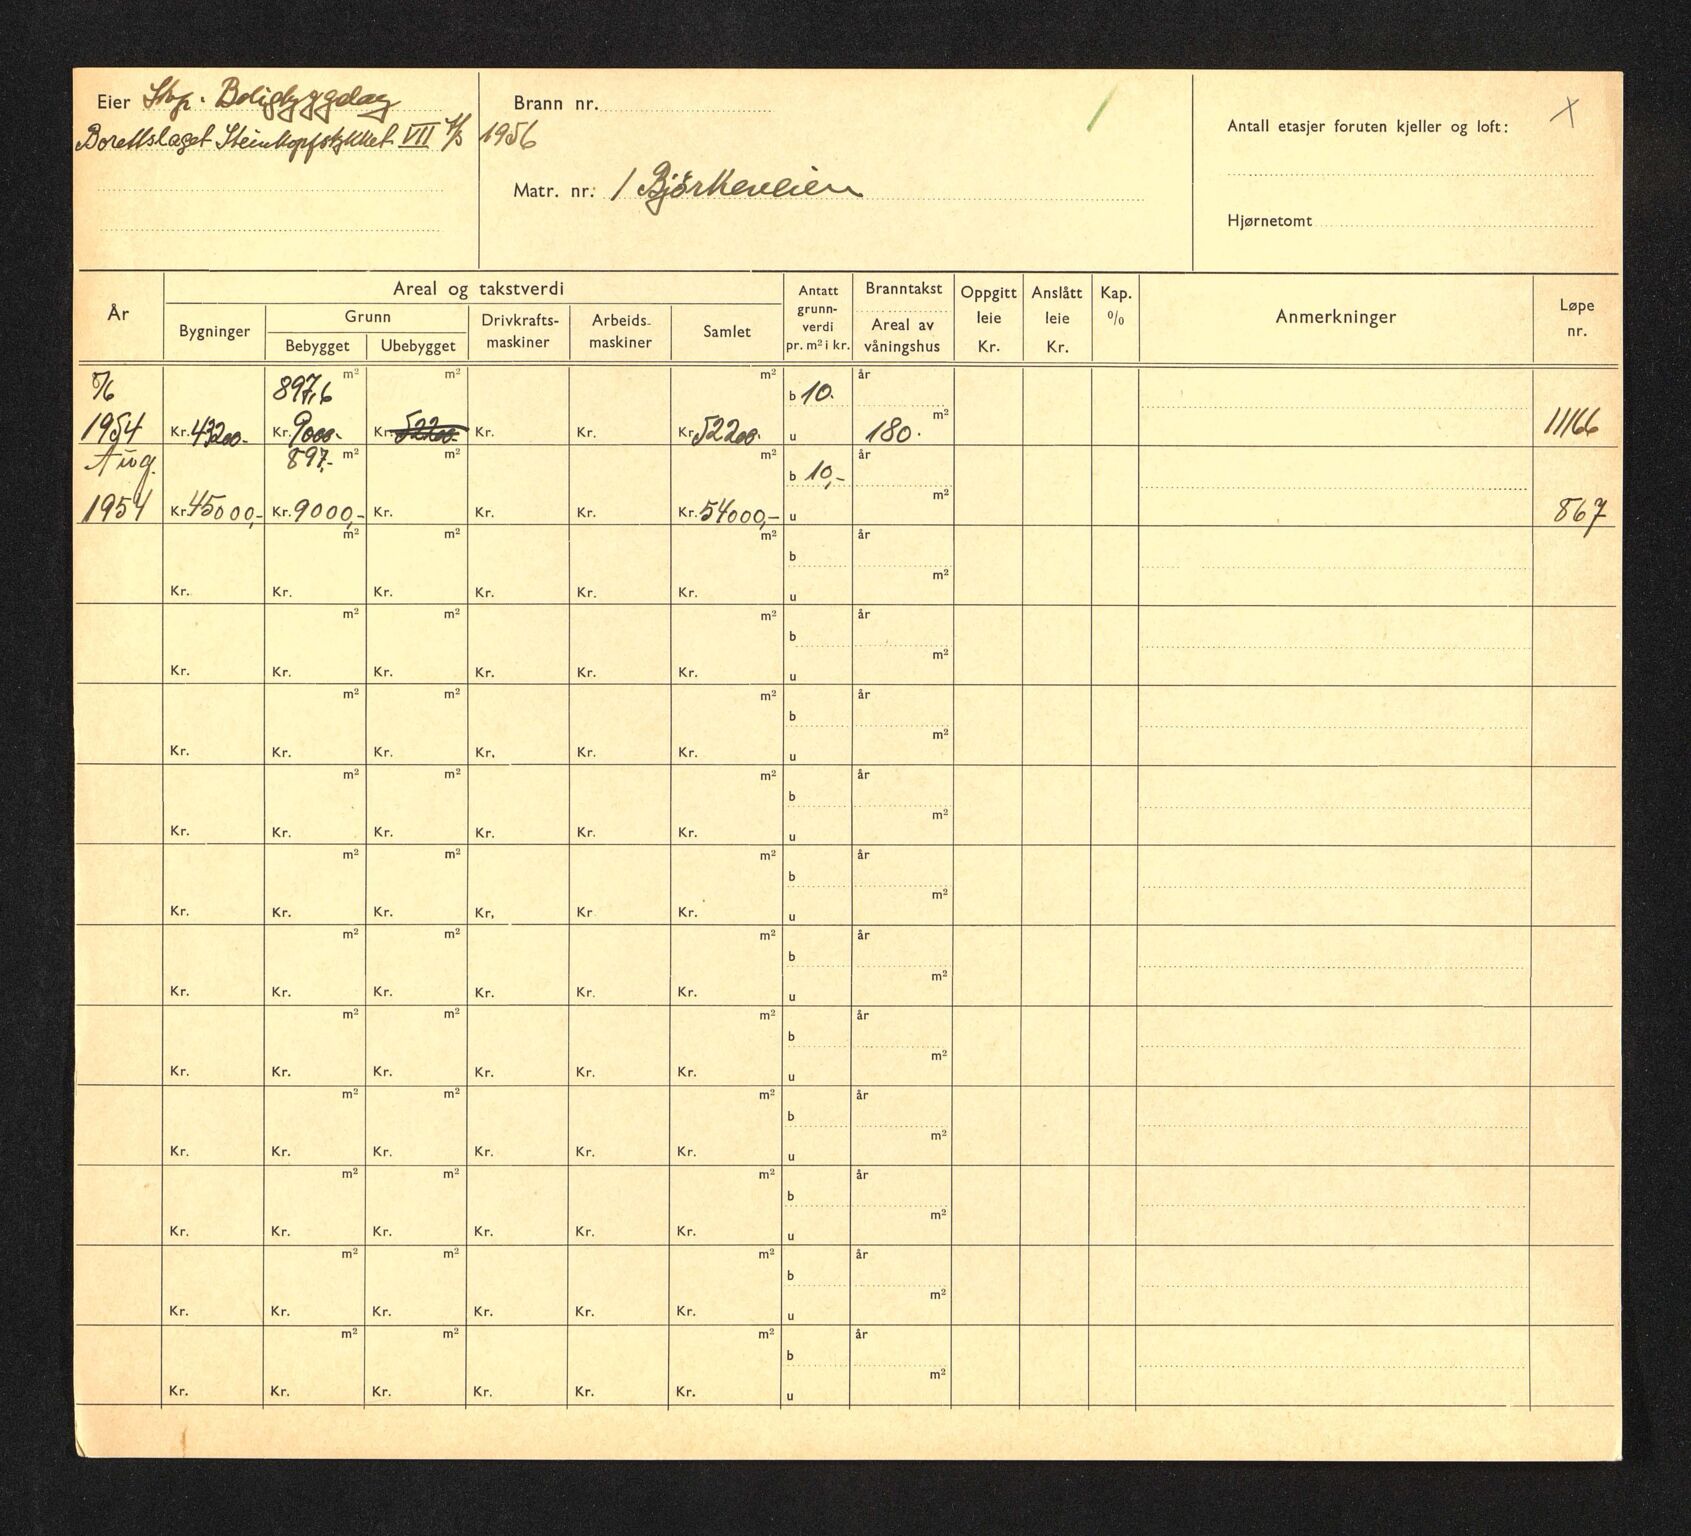 Eier Stvp. Boligbyggelag
Borettslaget Steinkopfstykket VII A/S 1956
Brann nr.
Matr. nr. 1 Björkeveien
Antall etasjer foruten kjeller og loft: X
Hjørnetomt
År
Areal og takstverdi
Bygninger
Grunn
Bebygget Ubebygget
Drivkrafts-
maskiner
Arbeids-
maskiner
Samlet
Antatt
grunn-
verdi
pr. m² i kr.
Branntakst
Areal av
våningshus
Oppgitt
leie
Kr.
Anslått
leie
Kr.
Kap.
%
Anmerkninger
Løpe
nr.
5/6 897,6 m² m² m² b 10. år
1954 Kr. 43200.- Kr. 9000.- Kr. 52200.- Kr. Kr. Kr. 52200.- u 180. m² 11166
Aug. 897.- m² m² m² b 10,- år
1954 Kr. 45000,- Kr. 9000,- Kr. Kr. Kr. Kr. 54000,- u m² 867
m² m² m² b år
Kr. Kr. Kr. Kr. Kr. Kr. u m²
m² m² m² b år
Kr. Kr. Kr. Kr. Kr. Kr. u m²
m² m² m² b år
Kr. Kr. Kr. Kr. Kr. Kr. u m²
m² m² m² b år
Kr. Kr. Kr. Kr. Kr. Kr. u m²
m² m² m² b år
Kr. Kr. Kr. Kr. Kr Kr. u m²
m² m² m² b år
Kr. Kr. Kr. Kr. Kr. Kr. u m²
m² m² m² b år
Kr. Kr. Kr. Kr. Kr. Kr. u m²
m² m² m² b år
Kr. Kr. Kr. Kr. Kr. Kr. u m²
m² m² m² b år
Kr. Kr. Kr. Kr. Kr. Kr. u m²
m² m² m² b år
Kr. Kr. Kr. Kr. Kr. Kr. u m²
m² m² m² b år
Kr. Kr. Kr. Kr. Kr. Kr. u m²